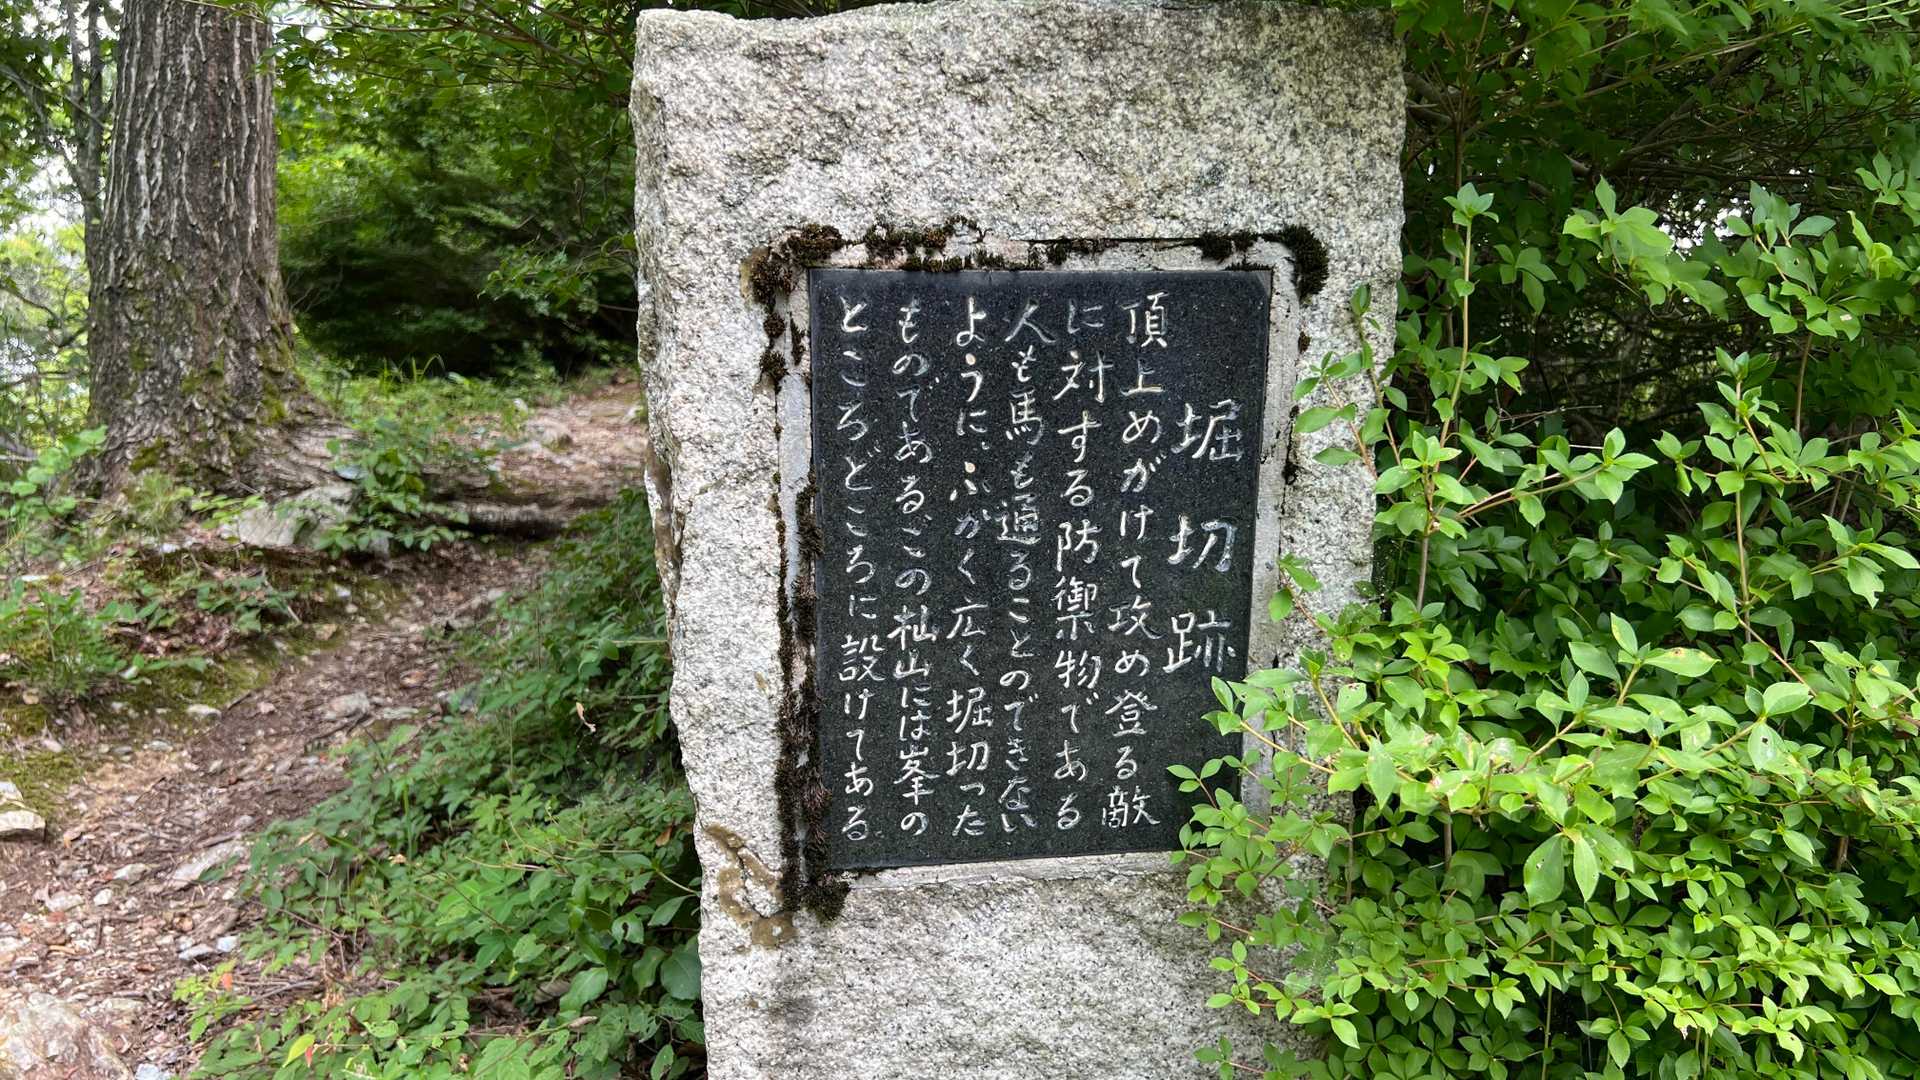 堀切跡
頂上めがけて攻め登る敵
に対する防禦物である
人も馬も通ることのできない
ように、ふかく広く堀切った
ものであるこの杣山には峯の
ところどころに設けてある